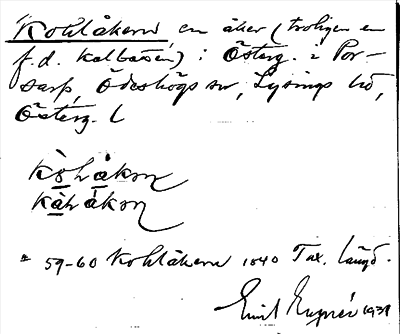 Kohlåkern, en åker (troligen en
f.d. Kalvagen) i Österg. i Por-
sarp, Ödeshögs sn, Lysings hd,
Österg. l
kòhåkon
kàhåkon
59-60 Kohlåkern 1840 Tax. längd.
Emil 1931